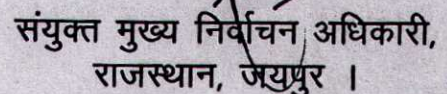 संयुक्त मुख्य निर्वाचन अधिकारी,
राजस्थान, जयपुर ।